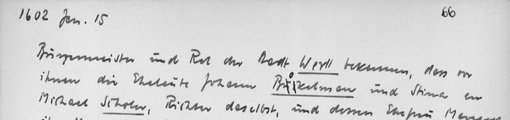 1602 Jan. 15 66
Bürgermeister und Rat der Stadt Werl bekennen, dass vor
ihnen die Eheleute Johann und Stina an
Michael Scholer, Richter daselbst, und dessen Ehefrau